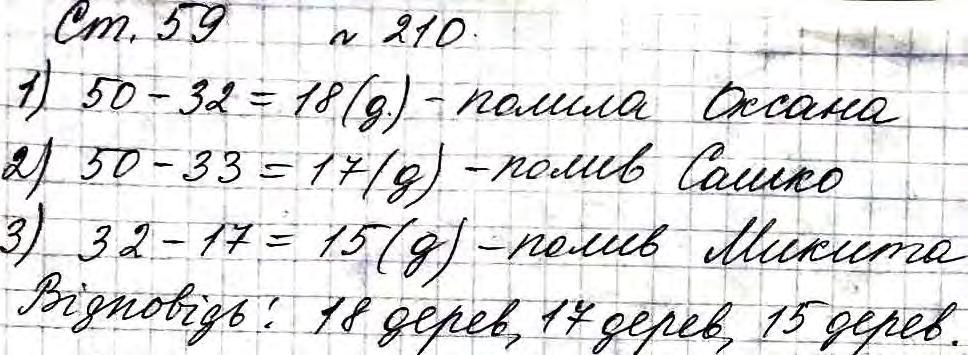 Ст. 59 № 210.
1) 50 - 32 = 18 (д.) - полила Оксана
2) 50 - 33 = 17 (д) - полив Сашко
3) 32 - 17 = 15 (д) - полив Микита
Відповідь: 18 дерев, 17 дерев, 15 дерев.